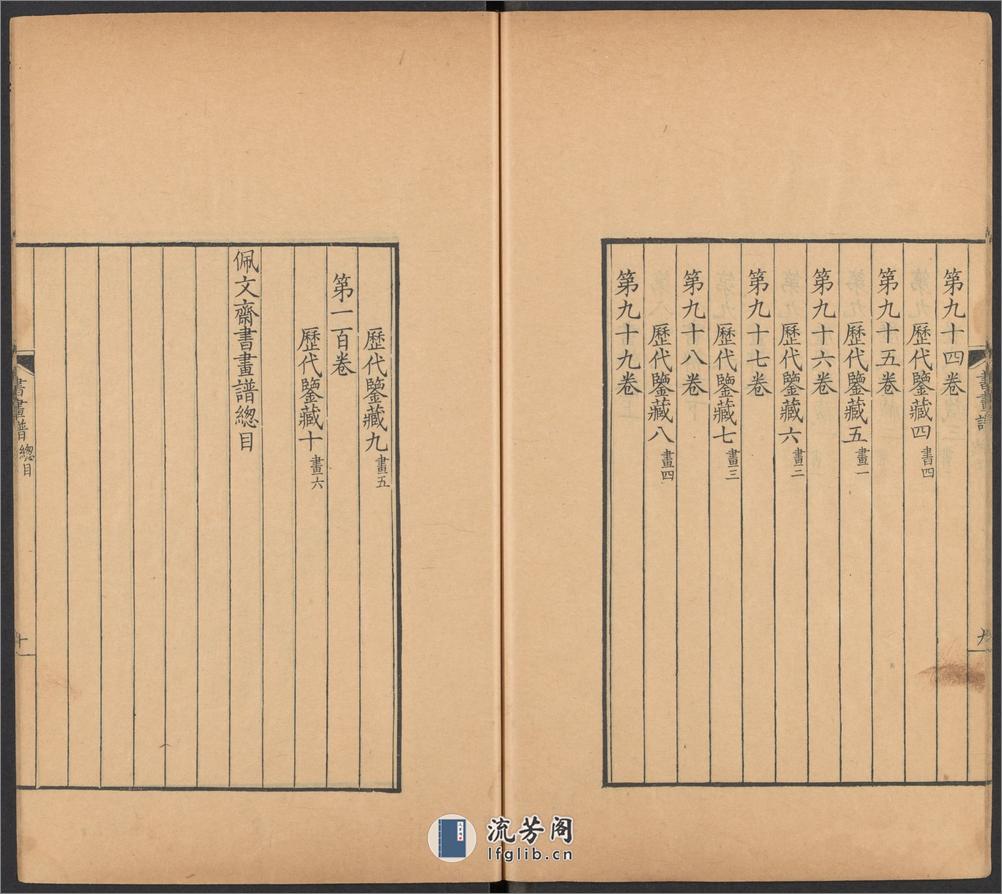 書畫譜
九
第九十四卷
歷代鑒藏四 書四
第九十五卷
歷代鑒藏五 畫一
第九十六卷
歷代鑒藏六 畫二
第九十七卷
歷代鑒藏七 畫三
第九十八卷
歷代鑒藏八 畫四
第九十九卷
歷代鑒藏九 畫五
第一百卷
歷代鑒藏十 畫六
佩文齋書畫譜總目
書畫譜總目
十
流芳阁
lfglib.cn